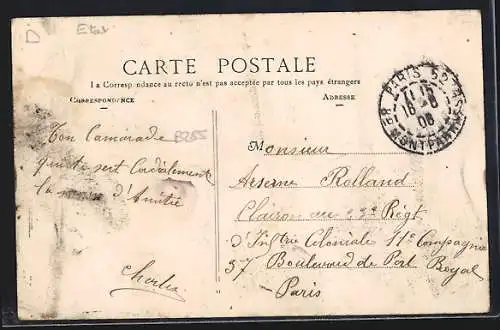 D
Etat
CARTE POSTALE
La Correspondance au recto n'est pas acceptée par tous les pays étrangers
CORRESPONDANCE
ADRESSE
PARIS 52
Bd MONTPARNASSE
06
Ton Camarade
sert Cordialement
la d'Amitié
Charles
Monsieur
Arsenne Rolland
Clairon au 23e Régt
d'Inftrie Coloniale 11e Compagnie
37 Boulevard de Port Royal
Paris